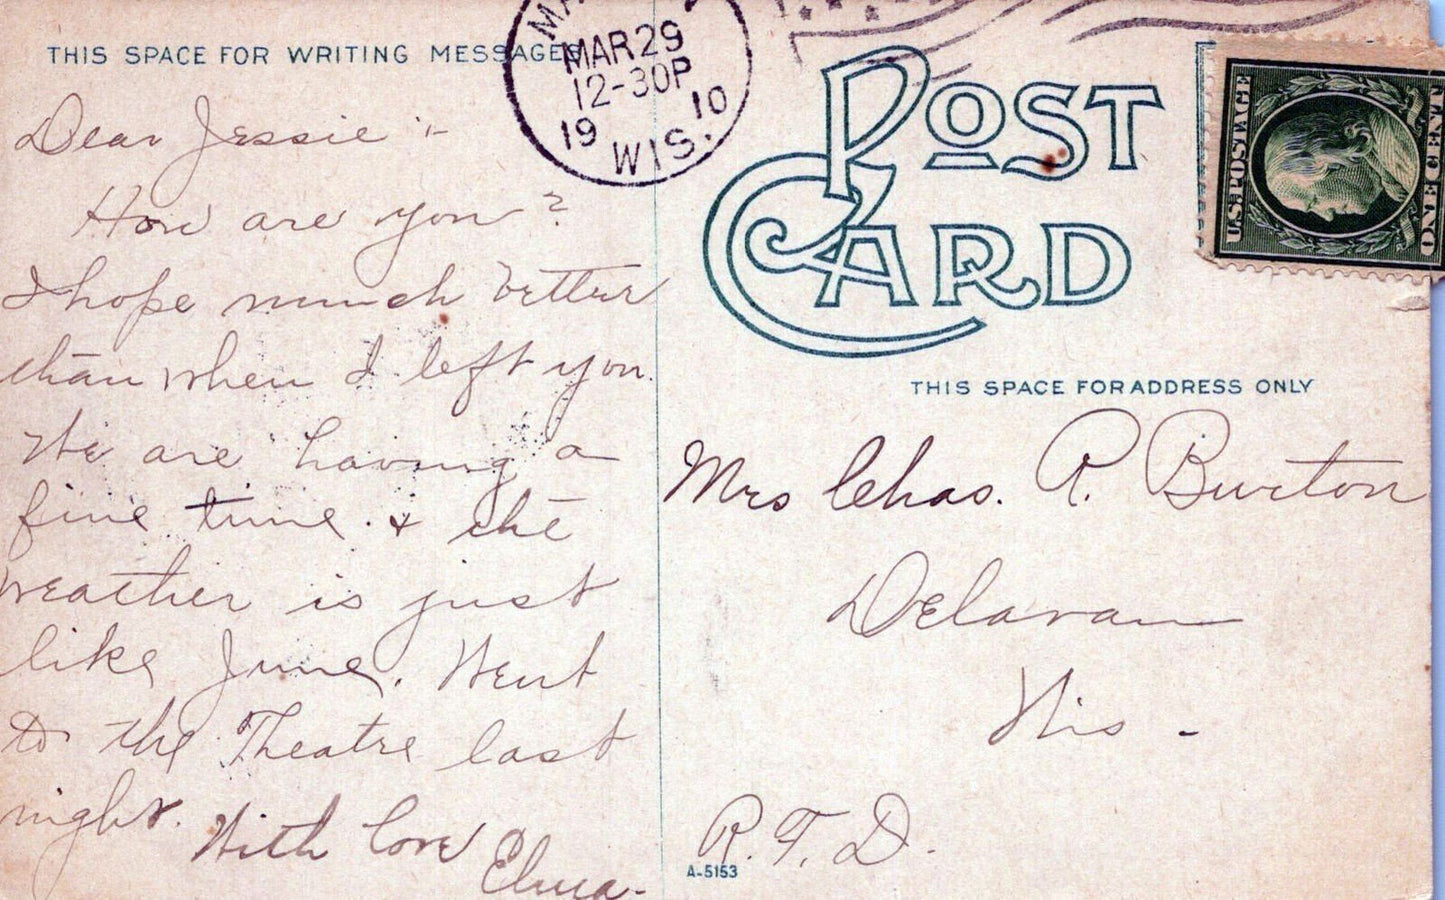 THIS SPACE FOR WRITING MESSAGES
MAR 29
12-30P
19 10
WIS.
POST
CARD
U.S. POSTAGE
ONE CENT
THIS SPACE FOR ADDRESS ONLY
Dear Jessie :-
How are you?
I hope much better
than when I left you.
We are having a
fine time. & the
weather is just
like June. Went
to the Theatre last
night.
With love
Elma.
Mrs Chas. R. Burton
Delavan
Wis -
R. F. D.
A-5153